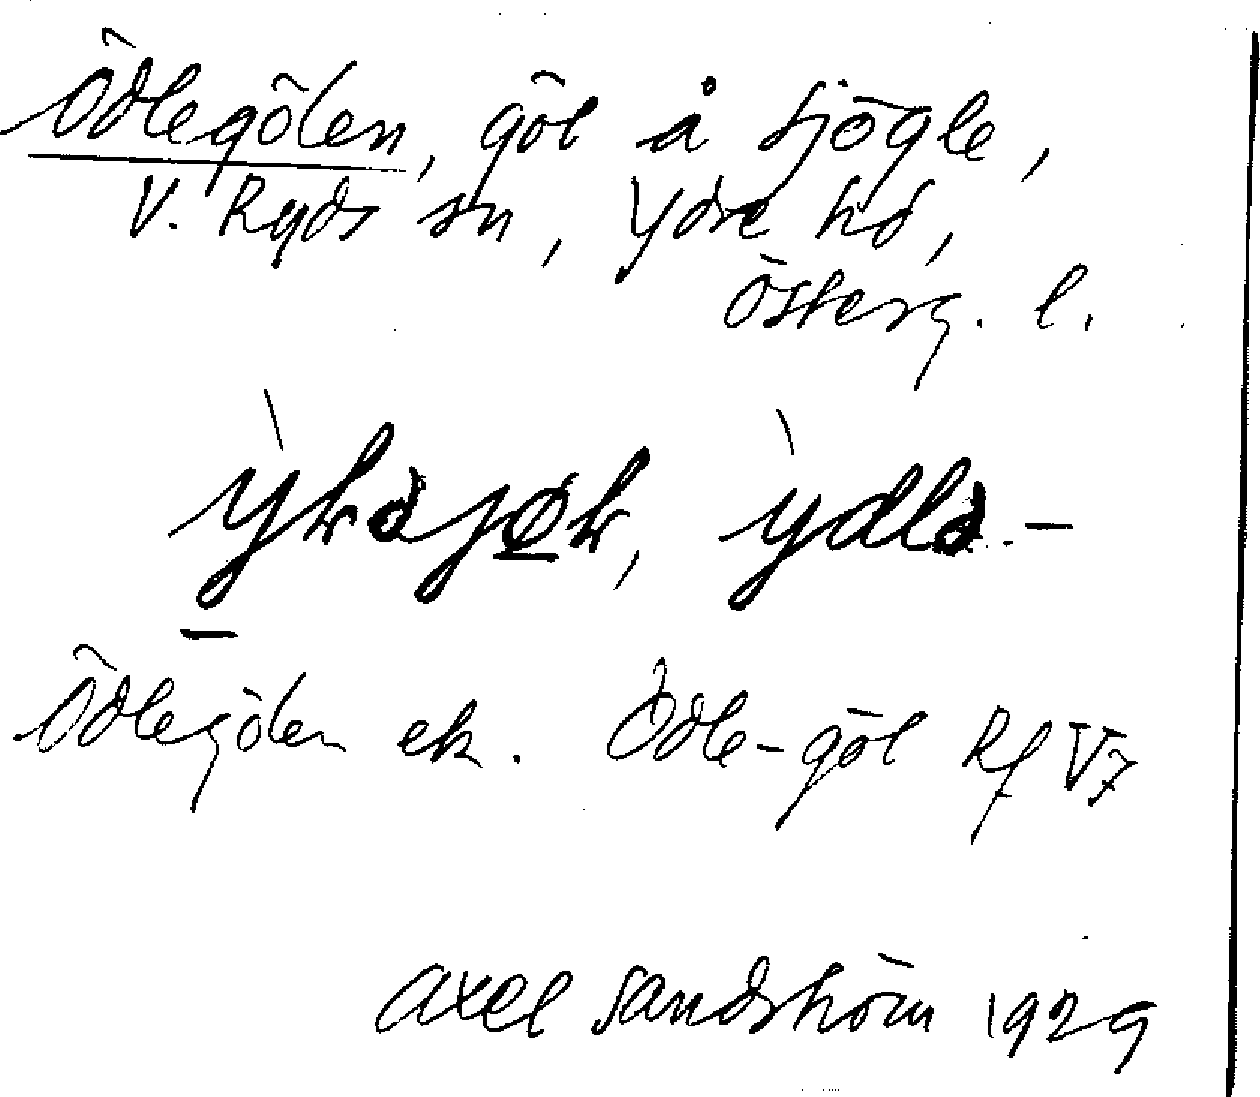 Ödlegölen, göl å Sjögle,
V. Ryds sn, Ydre hd,
Österg. l.
ydlə-
Ödlegölen ek. Ödle-göl Rf V7
Axel Sandström 1929